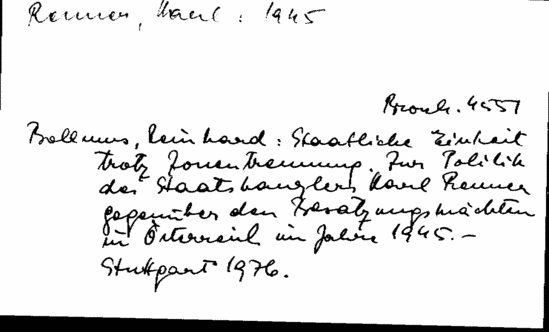 Renner, Karl : 1945
Brosch. 4551
Bollmus, Reinhard : Staatliche Einheit
trotz Zonentrennung. Zur Politik
des Staatskanzlers Karl Renner
gegenüber den Besatzungsmächten
in Österreich im Jahre 1945. –
Stuttgart 1976.